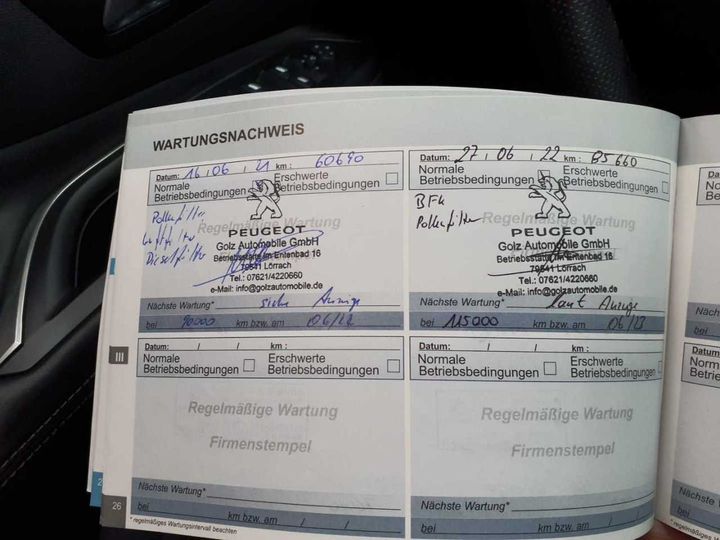 WARTUNGSNACHWEIS
Datum: 16 , 06 , 21 km : 60690
Normale Betriebsbedingungen
Erschwerte Betriebsbedingungen
Pollenfilter
Luftfilter
Dieselfilter
Regelmäßige Wartung
PEUGEOT
Golz Automobile GmbH
Betriebsstätte Im Entenbad 16
79541 Lörrach
Tel.: 07621/4220660
e-Mail: info@golzautomobile.de
Nächste Wartung* siehe Anzeige
bei 90000 km bzw. am 06/22
Datum: 27 , 06 , 22 km : 85660
Normale Betriebsbedingungen
Erschwerte Betriebsbedingungen
BFK
Pollenfilter
Regelmäßige Wartung
PEUGEOT
Golz Automobile GmbH
Betriebsstätte Im Entenbad 16
79541 Lörrach
Tel.: 07621/4220660
e-Mail: info@golzautomobile.de
Nächste Wartung* laut Anzeige
bei 115000 km bzw. am 06/23
III
Datum: / / km :
Normale Betriebsbedingungen
Erschwerte Betriebsbedingungen
Regelmäßige Wartung
Firmenstempel
Nächste Wartung*
bei km bzw. am / /
Datum: / / km :
Normale Betriebsbedingungen
Erschwerte Betriebsbedingungen
Regelmäßige Wartung
Firmenstempel
Nächste Wartung*
bei km bzw. am / /
26
* regelmäßiges Wartungsintervall beachten